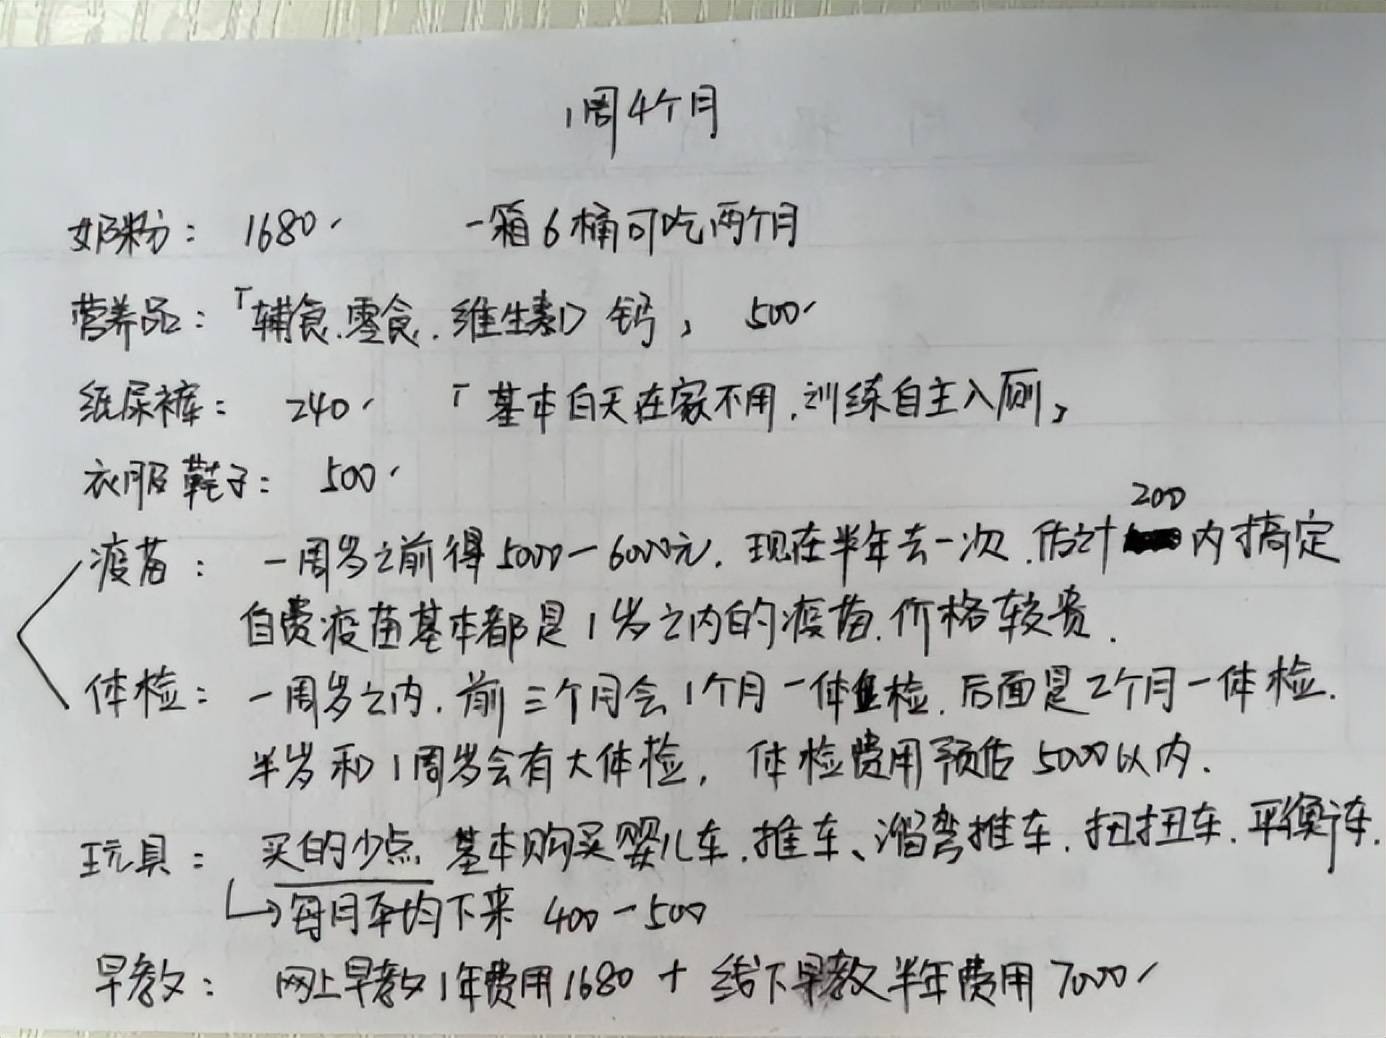 1周4个月
奶粉： 1680、 一箱6桶可吃两个月
营养品：「辅食.零食.维生素D 钙」 500、
纸尿裤： 240、 「基本白天在家不用,训练自主入厕」
衣服鞋子： 500、
200
疫苗： 一周岁之前得5000一6000元, 现在半年去一次,估计 内搞定
自费疫苗基本都是1岁之内的疫苗,价格较贵.
体检： 一周岁之内,前三个月会1个月一体检,后面是2个月一体检.
半岁和1周岁会有大体检, 体检费用预估5000以内.
玩具： 买的少点 基本购买婴儿车.推车、溜弯推车.扭扭车.平衡车.
→每月平均下来 400一500
早教： 网上早教1年费用1680 + 线下早教半年费用7000、